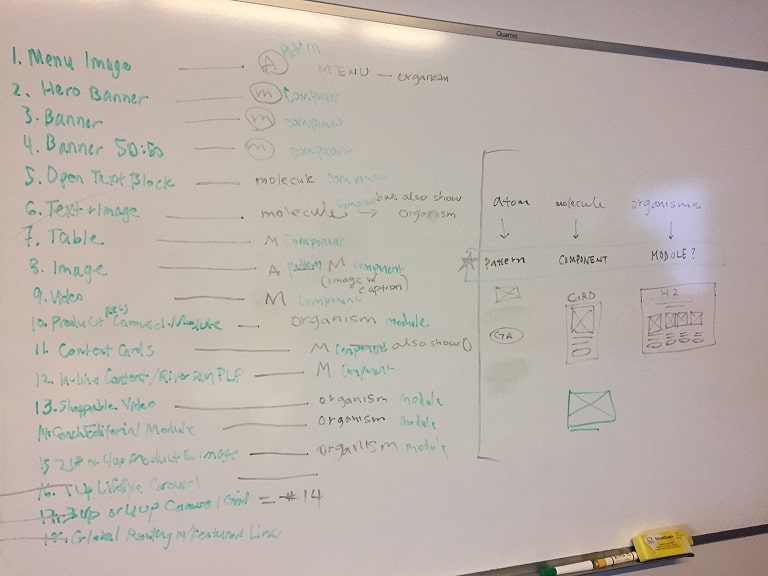 Quartet
1. Menu Image — A pattern
MENU — organism
2. Hero Banner — m Component
3. Banner — m component
4. Banner 50:50 — m component
5. Open Text Block — molecule Component
6. Text + Image — molecule → but also show organism
7. Table — M Component
8. Image — A pattern M Component
(image w/ caption)
9. Video — M Component
10. Product Carousel Module — organism module
11. Content Cards — M Component also show O
12. In-line Content / PLP — M Component
13. Shoppable Video — organism module
14. Editorial Module — organism module
15 Product & image — organism module
16. Lifestyle Carousel
17. 3up or 4up Carousel Grid = #14
Global Featured Link
atom molecule organisms
Pattern COMPONENT MODULE?
CARD